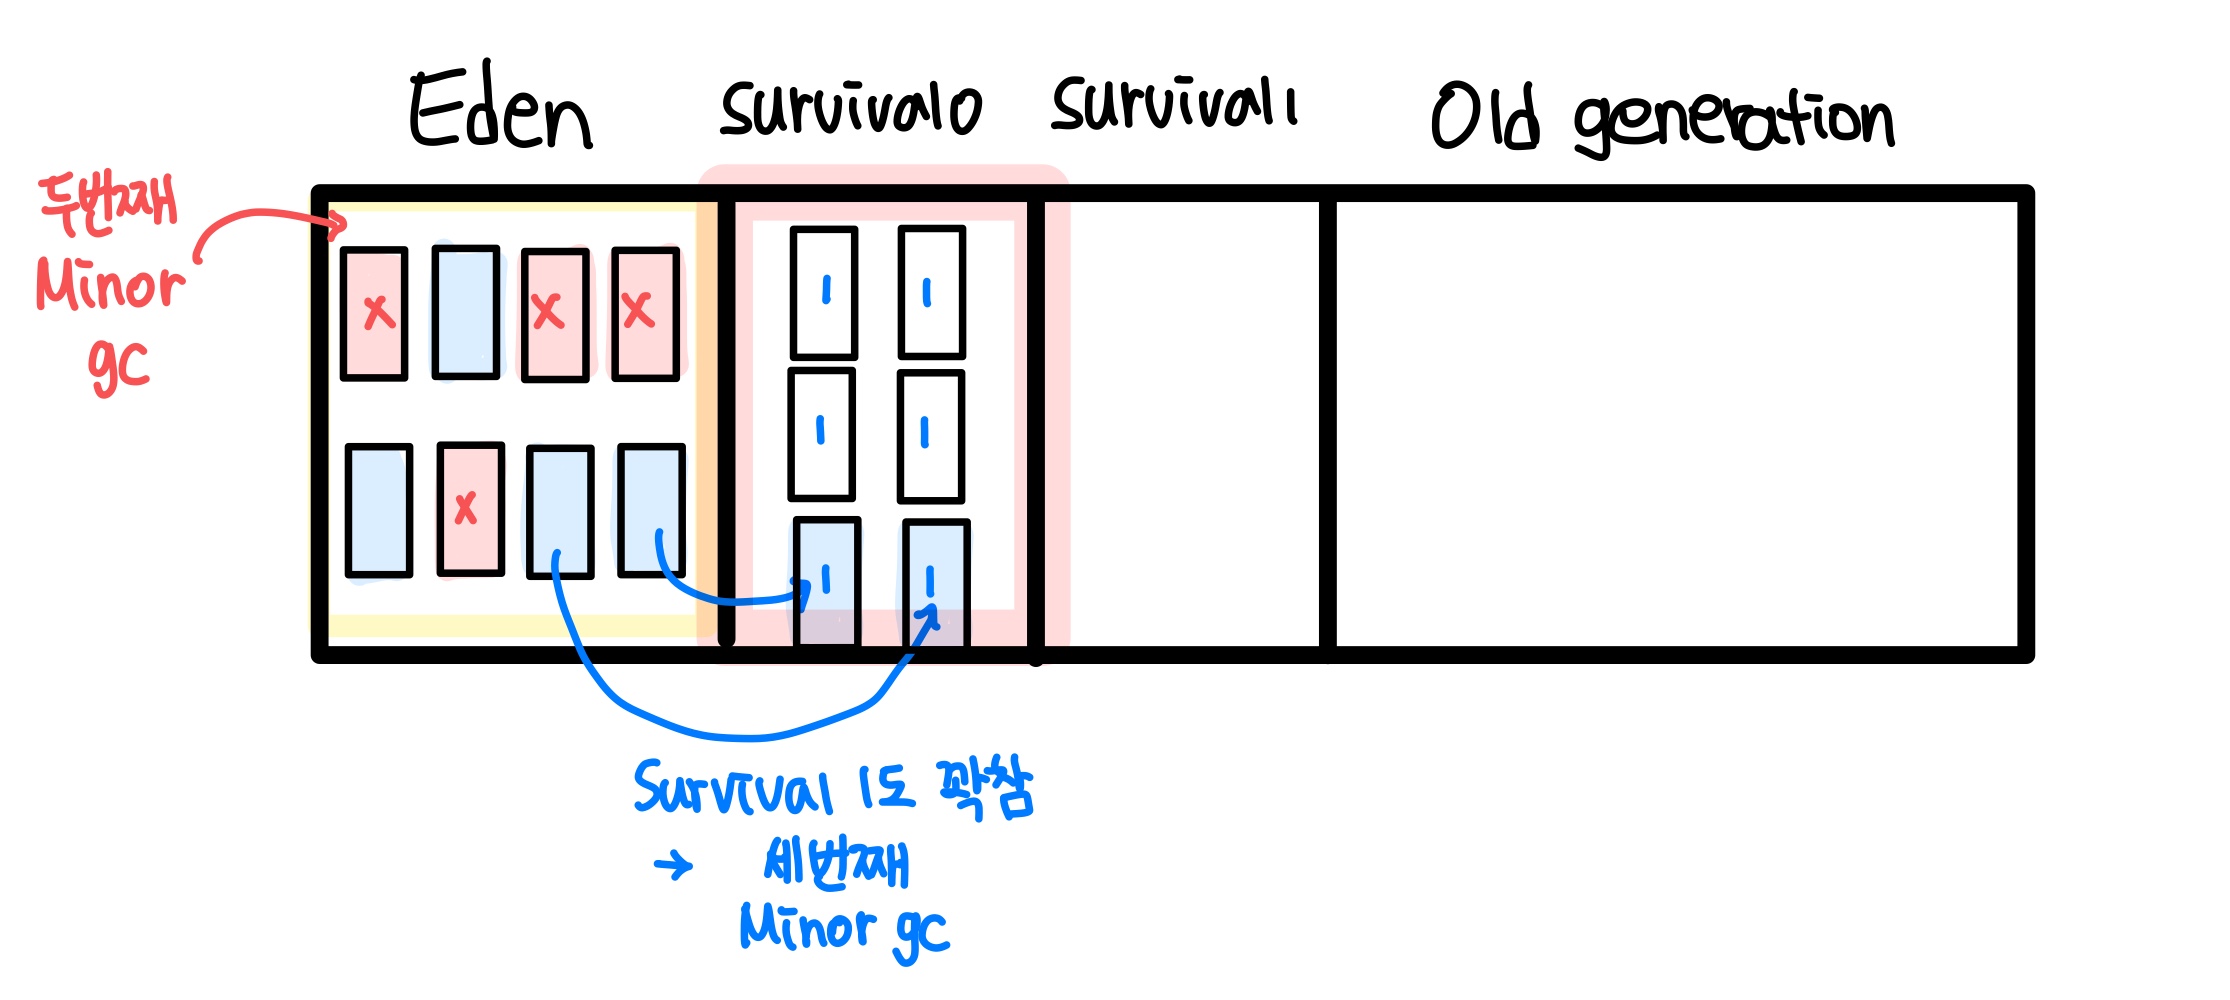 Eden survival0 survival1 Old generation
두번째
Minor
gc
x x x
x
1 1
1 1
1 1
Survival 1도 꽉참
→ 세번째
Minor gc